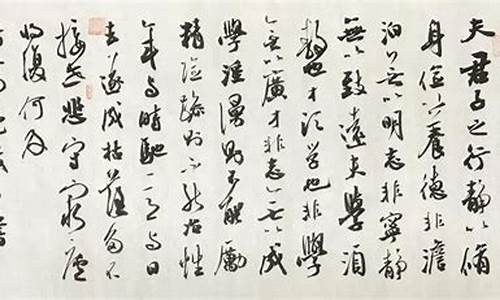 夫君子之行静以脩
身儉以養德非澹
泊無以明志非寧静
無以致遠夫學須
静也才須学也非學
無以廣才非志無以成
學淫漫則不能勵
精險躁則不能治性
年与時馳意与日
去遂成枯落多不
接世悲守窮廬
將復何及